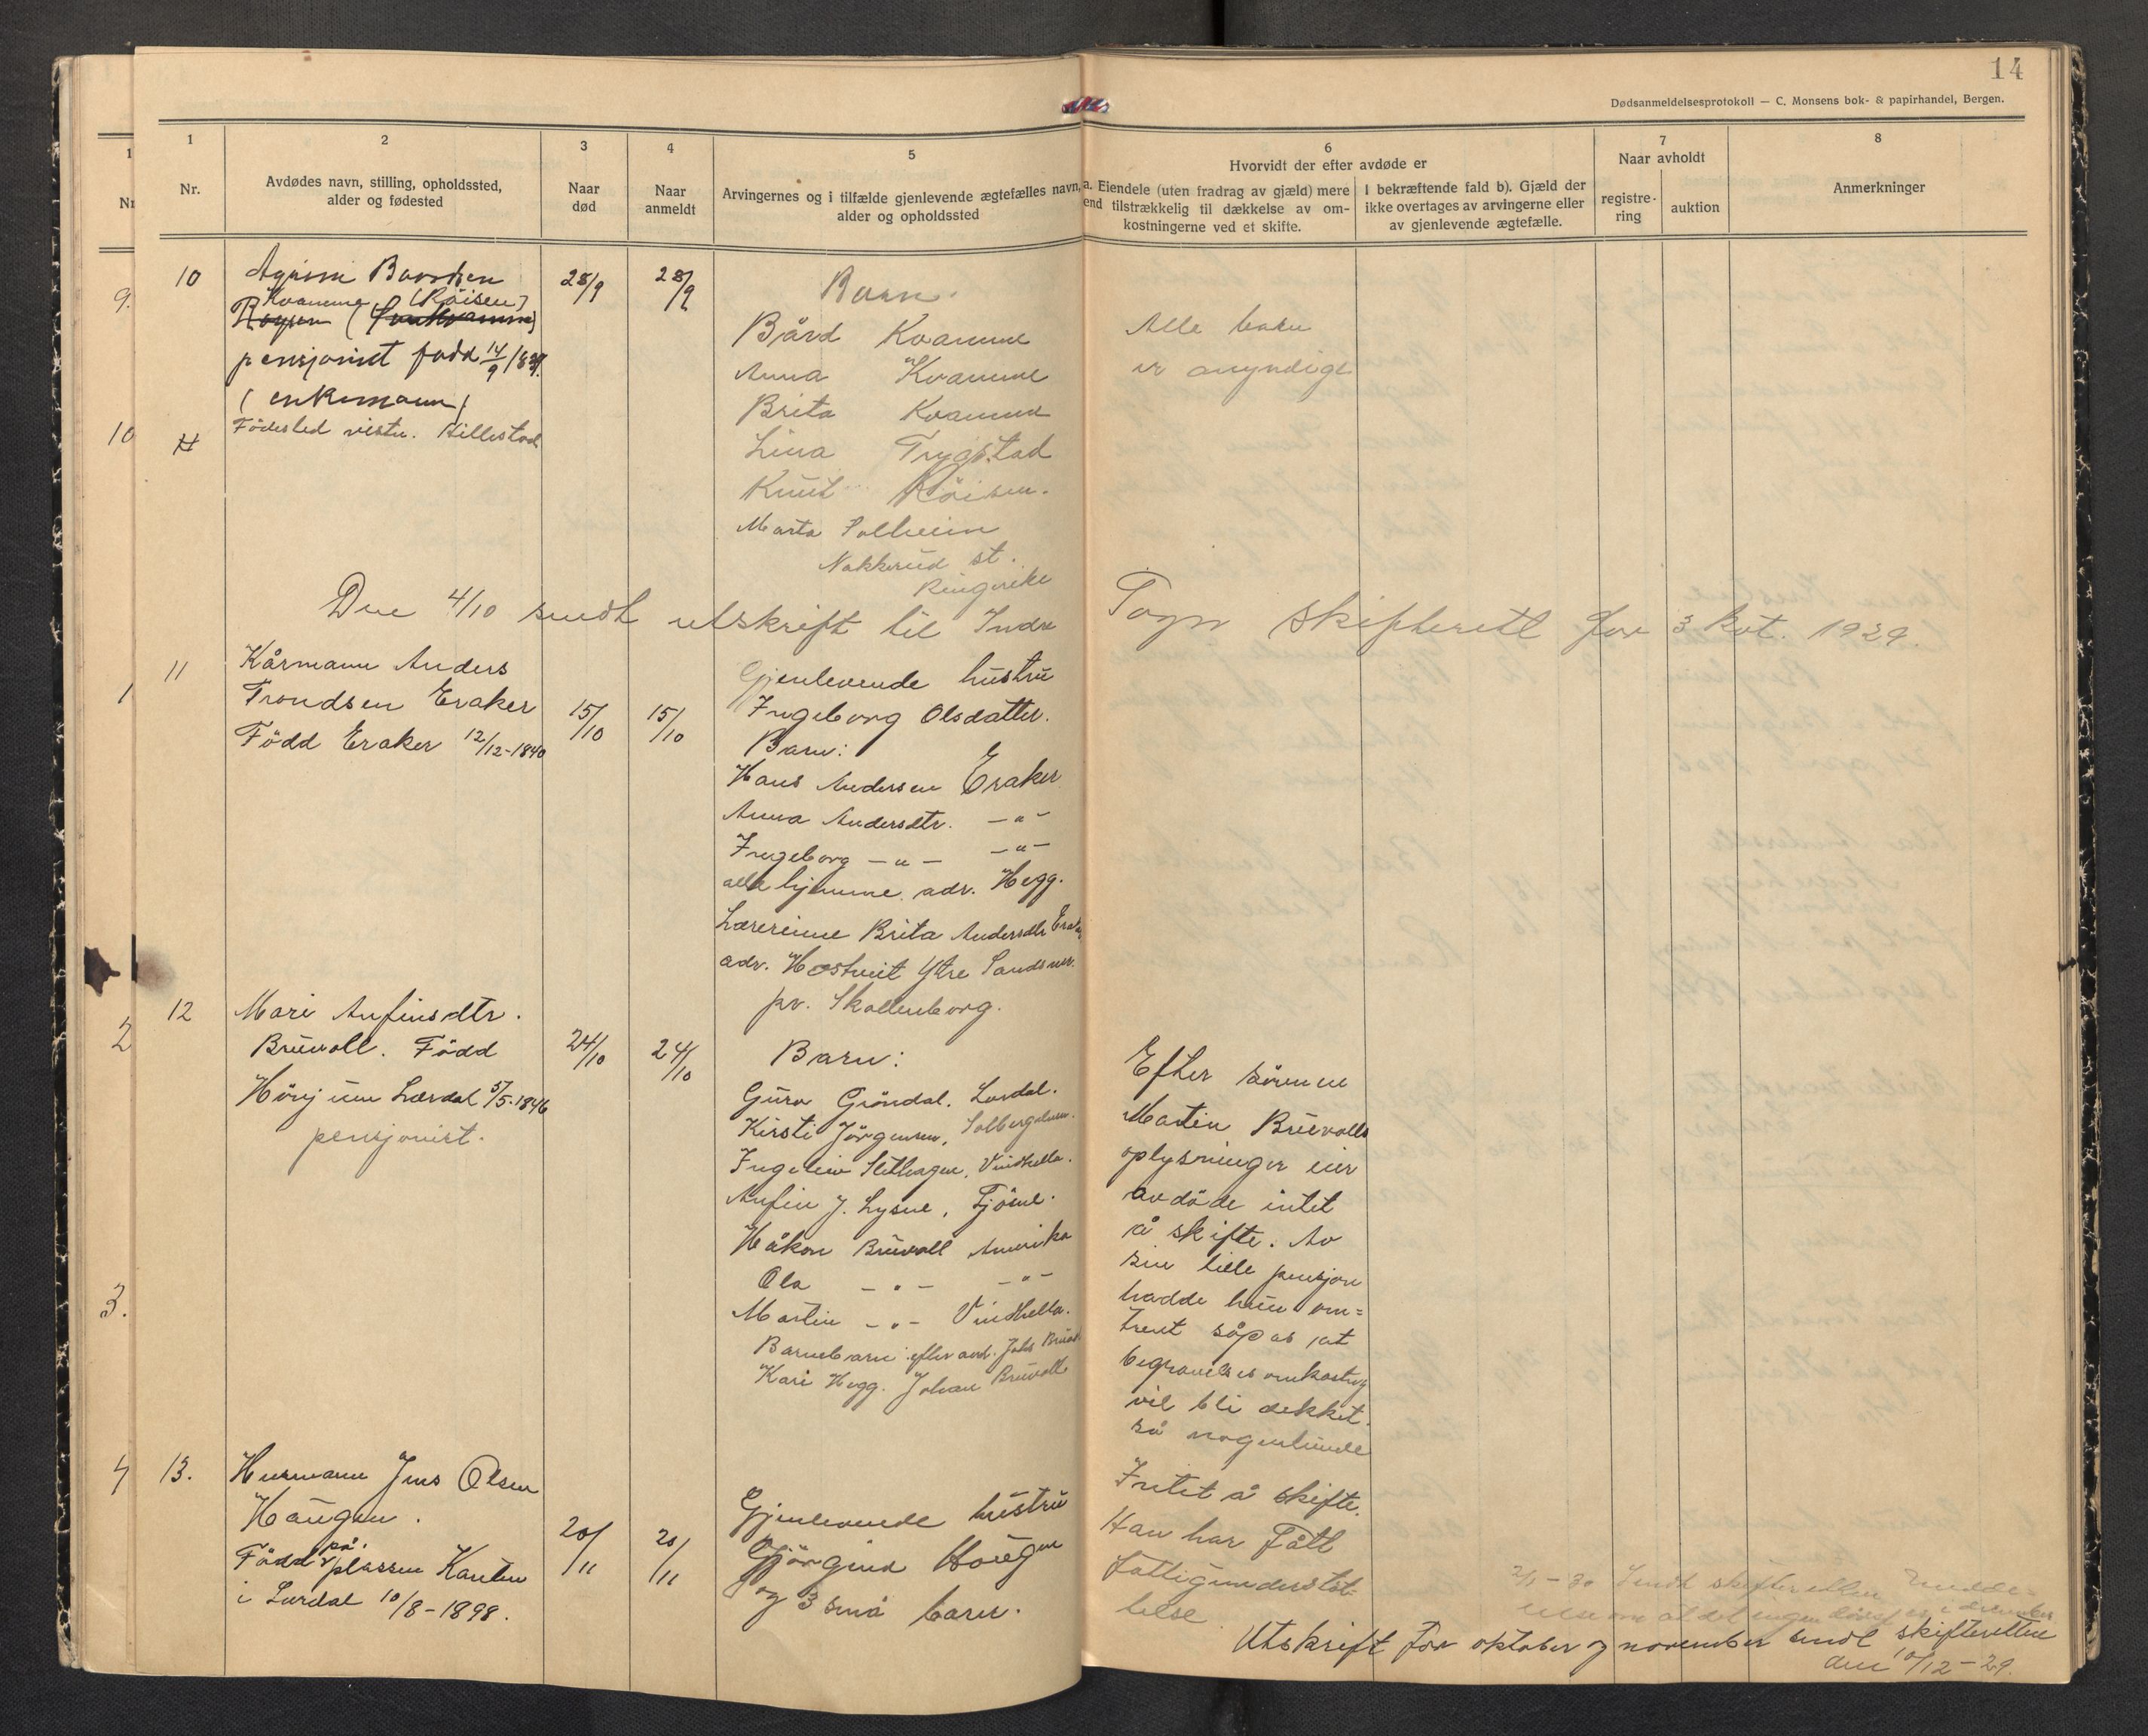 14
Dødsanmeldelsesprotokoll — C. Monsens bok- & papirhandel, Bergen.
1
Nr.
2
Avdødes navn, stilling, opholdssted,
alder og fødested
3
Naar
død
4
Naar
anmeldt
5
Arvingernes og i tilfælde gjenlevende ægtefælles navn,
alder og opholdssted
6
Hvorvidt der efter avdøde er
a. Eiendele (uten fradrag av gjæld) mere
end tilstrækkelig til dækkelse av om-
kostningerne ved et skifte.
I bekræftende fald b). Gjæld der
ikke overtages av arvingerne eller
av gjenlevende ægtefælle.
7
Naar avholdt
registre-
ring
auktion
8
Anmerkninger
1
Nr
9.
10
1
2
3.
4
10
Kvamme (Röisen)
pensjonist född 14/9
(enkemann)
Födested Hillestad
28/9
28/9
Barn.
Bård Kvamme
Anna Kvamme
Brita Kvamme
Lina Trygstad
Knut Röisen.
Marta Solheim
Nakkerud st.
Ringerike
Alle barn
er omyndige
Den 4/10 sendt utskrift til Indre Sogn skifterett for 3 kvt. 1929.
11
Kårmann Anders
Trondsen Eraker
Född Eraker 12/12-1840
15/10
15/10
Gjenlevende hustru
Ingeborg Olsdatter.
Barn:
Hans Andersen Eraker
Anna Andersdtr. -"-
Ingeborg -"- -"-
alle hjemme. adr. Hegg.
Lærerinne Brita Andersdtr Eraker
adr. Hostveit Ytre Sandsvær.
pr. Skollenborg.
12
Mari Anfinsdtr.
Brúvoll. Född
Hönjum Lærdal 5/5-1846
pensjonist.
24/10
24/10
Barn:
Guro Gröndal. Lærdal.
Kirsti Jörgensen,
Ingelein Vindhella.
Anfin J. Lysne, Tjöme.
Håkon Brúvoll Amerika
Ola -"- -"-
Martin -"- Vindhella.
Barnebarn: efter avd. Johs Brúvoll
Kari Hegg. Johan Brúvoll
Efter sönnen
Martin Brúvolls
oplysninger eier
avdöde intet
å skifte. Av
sin lille pensjon
hadde hun om=
trent såpas at
begravelsesomkostng
vil bli dekket
så nogenlunde
13.
Hermann Jens Olsen
Haugen.
Född på plassen Kanten
i Lærdal 10/8-1898.
20/11
20/11
Gjenlevende hustru
Haugen
og 3 små barn.
Intet å skifte.
Han har fått
fattigunderstöt-
telse
2/1-30 Sendt skifteretten medde-
lelse om at det ingen dödsf. er i desember
Utskrift for oktober og november sendt skifteretten
den 10/12-29.